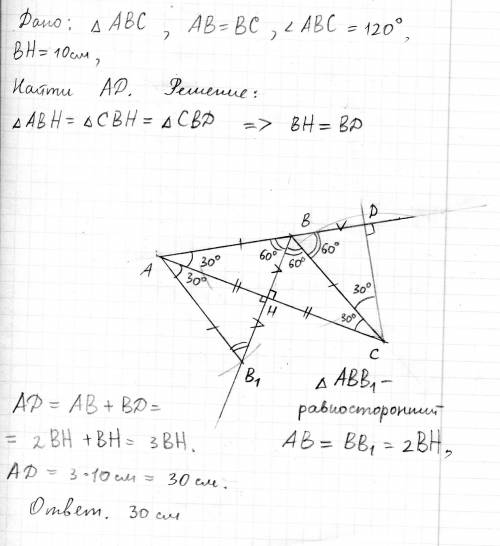 Дано: △ ABC, AB = BC, ∠ ABC = 120°,
BH = 10 см,
Найти AD. Решение:
△ ABH = △ CBH = △ CBD => BH = BD
B
D
60° 60° 60°
A
30°
30°
H
30°
30°
C
B₁
△ ABB₁ –
равносторонний
AB = BB₁ = 2BH,
AD = AB + BD =
= 2BH + BH = 3BH.
AD = 3·10 см = 30 см.
Ответ. 30 см